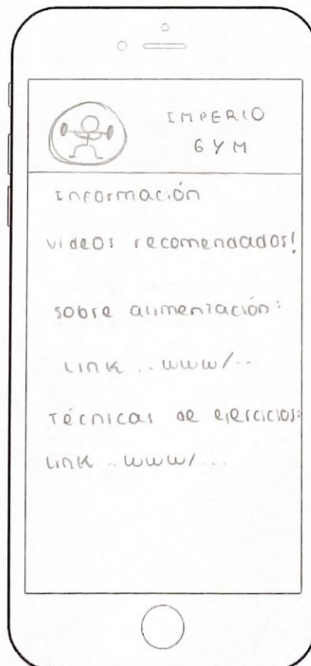 IMPERIO
GYM
Información
videos recomendados!
sobre alimentación:
Link .. www/...
Técnicas de ejercicios:
Link .. www/...